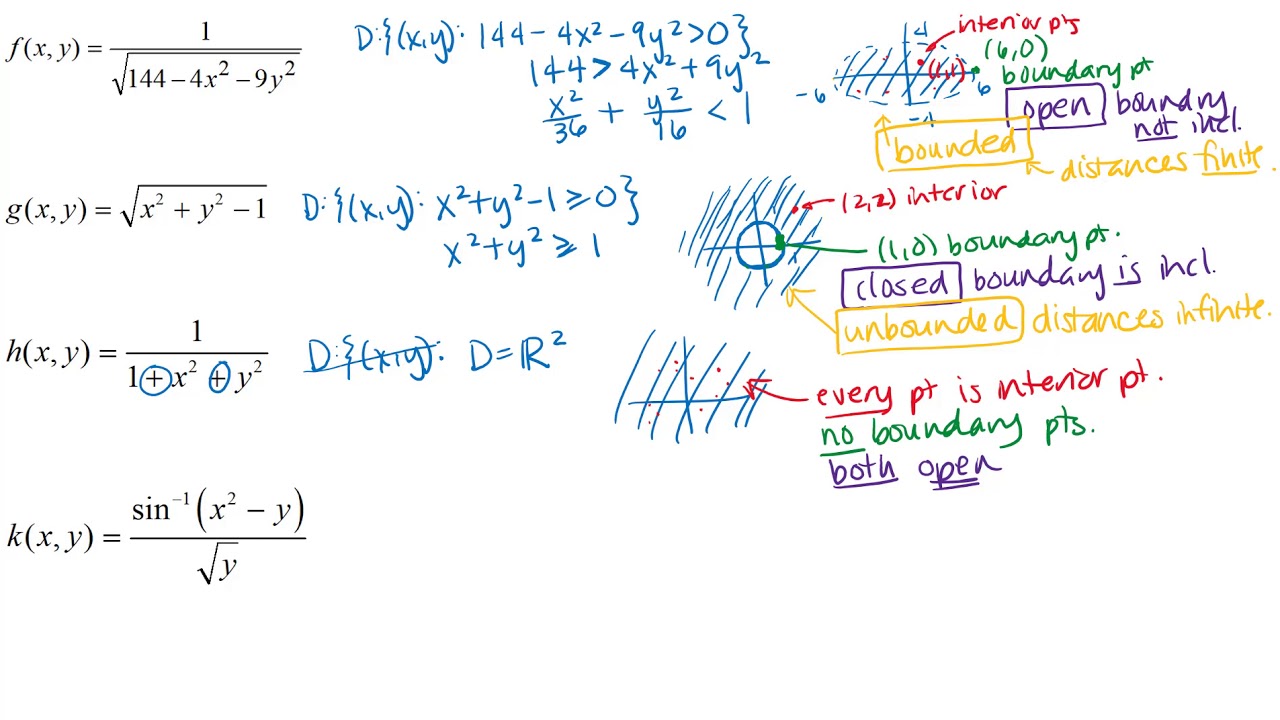 f(x, y) = 1 / √(144 − 4x² − 9y²)
D:{(x,y): 144 − 4x² − 9y² > 0}
144 > 4x² + 9y²
x²/36 + y²/16 < 1
4
-6
6
-4
interior pts
(1,1)
(6,0)
boundary pt
open boundary
not incl.
bounded
distances finite.
g(x, y) = √(x² + y² − 1)
D:{(x,y): x² + y² − 1 ≥ 0}
x² + y² ≥ 1
(2,2) interior
(1,0) boundary pt.
closed boundary is incl.
unbounded distances infinite.
h(x, y) = 1 / (1 + x² + y²)
D:{(x,y): D = ℝ²
every pt is interior pt.
no boundary pts.
both open
k(x, y) = sin⁻¹(x² − y) / √y